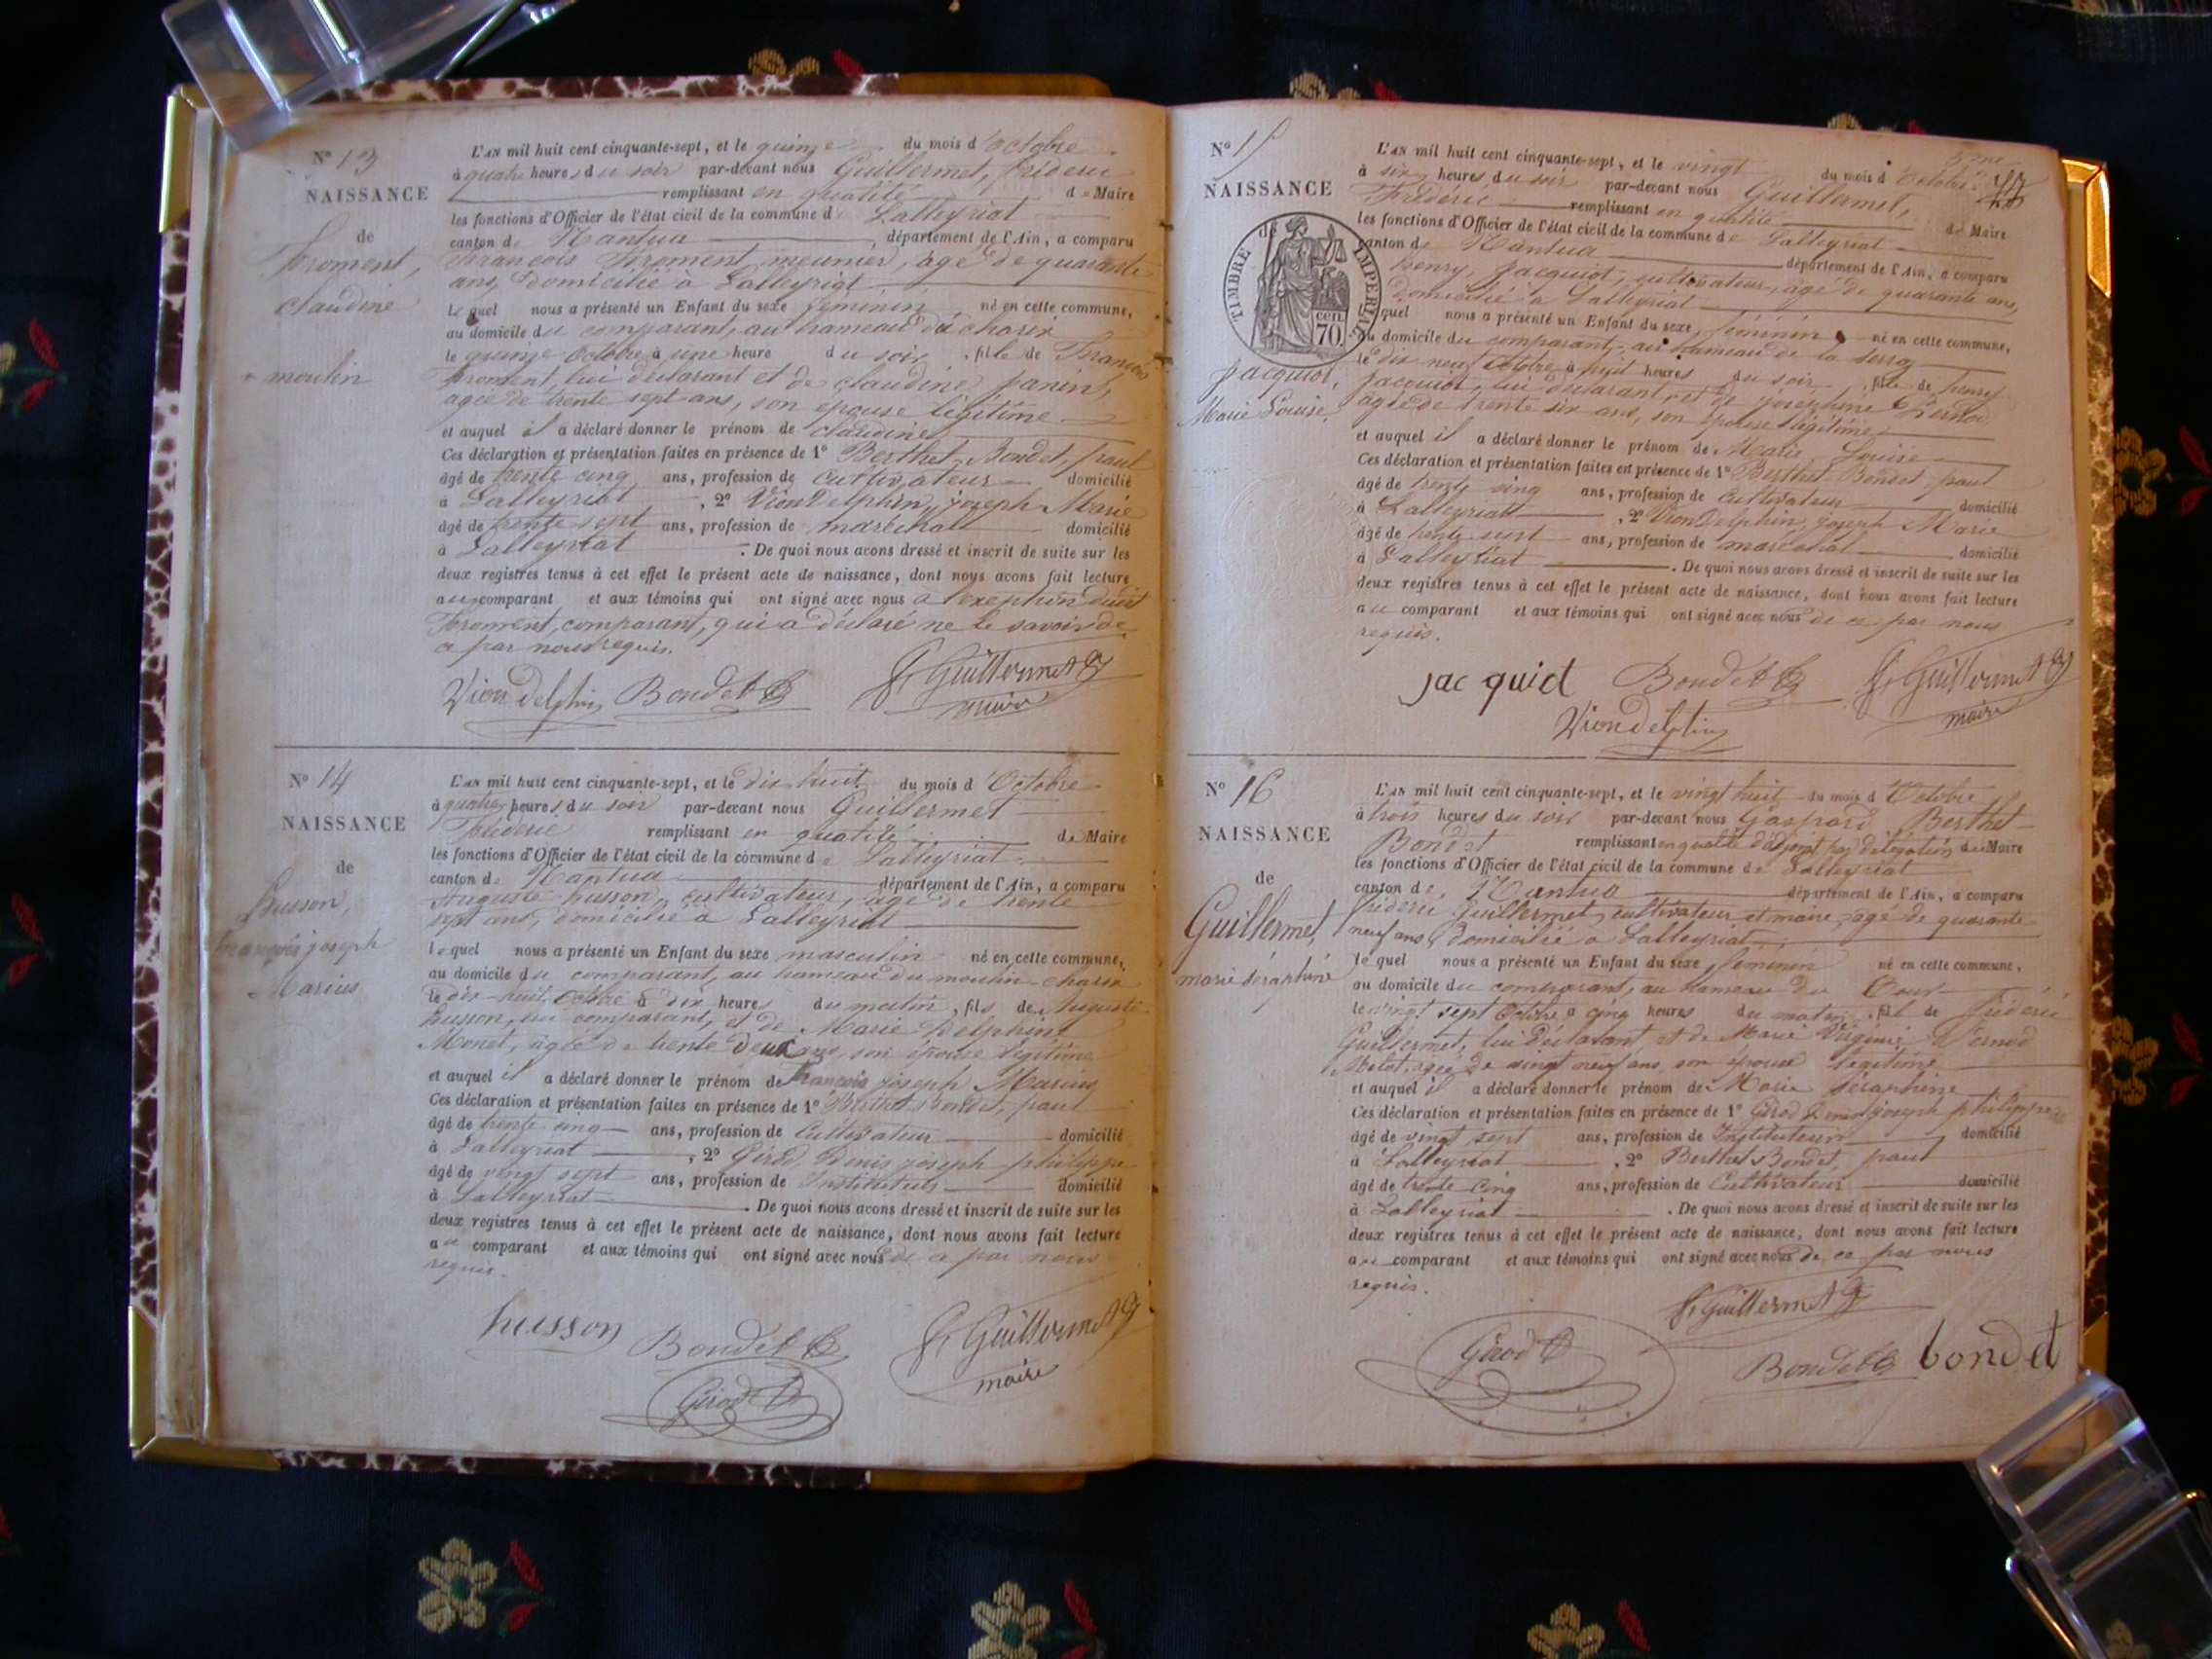 N° 13
NAISSANCE
de
Froment,
claudine
moulin
L'AN mil huit cent cinquante-sept, et le quinze du mois d'octobre
à quatre heures du soir par-devant nous Guillermet, frideric
remplissant en qualité de Maire
les fonctions d'Officier de l'état civil de la commune de Lalleyriat
canton de Nantua, département de l'Ain, a comparu
francois Froment meunier, âgé de quarante
ans, domicilié à Lalleyriat
lequel nous a présenté un Enfant du sexe féminin né en cette commune,
au domicile du comparant, au hameau du charix
le quinze octobre à une heure du soir, fille de François
Froment, lui declarant et de claudine panin,
agée de trente sept ans, son épouse légitime
et auquel il a déclaré donner le prénom de claudine
Ces déclaration et présentation faites en présence de 1° Berthet-Bondet, paul
âgé de trente cinq ans, profession de cultivateur domicilié
à Lalleyriat, 2° Viondelphin, joseph Marie
âgé de trente sept ans, profession de maréchal domicilié
à Lalleyriat. De quoi nous avons dressé et inscrit de suite sur les
deux registres tenus à cet effet le présent acte de naissance, dont nous avons fait lecture
au comparant et aux témoins qui ont signé avec nous a l'exeption dudit
Froment, comparant, qui a déclaré ne le savoir de
ce par nous requis.
Viondelphin Bondet F. Guillermet
maire
N° 14
NAISSANCE
de
husson,
francois joseph
Marius
L'AN mil huit cent cinquante-sept, et le dix huit du mois d'Octobre
à quatre heures du soir par-devant nous Guillermet
Frideric remplissant en qualité de Maire
les fonctions d'Officier de l'état civil de la commune de Lalleyriat
canton de Nantua département de l'Ain, a comparu
Auguste husson, cultivateur, agé de trente
sept ans, domicilié à Lalleyriat
lequel nous a présenté un Enfant du sexe masculin né en cette commune,
au domicile du comparant, au hameau du moulin charix
le dix-huit, Octobre à dix heures du matin, fils de Auguste
husson, lui comparant, et de Marie Delphine
Monet, agée de trente deux ans, son épouse légitime
et auquel il a déclaré donner le prénom de François joseph Marius
Ces déclaration et présentation faites en présence de 1° Berthet-Bondet, paul
âgé de trente cinq ans, profession de Cultivateur domicilié
à Lalleyriat, 2° Girod, Denis joseph philippe
âgé de vingt sept ans, profession de Instituteur domicilié
à Lalleyriat. De quoi nous avons dressé et inscrit de suite sur les
deux registres tenus à cet effet le présent acte de naissance, dont nous avons fait lecture
au comparant et aux témoins qui ont signé avec nous de ce par nous
requis.
husson Bondet F. Guillermet
Girod maire
N° 15
NAISSANCE
de
TIMBRE IMPERIAL
CEN. 70.
jacquiot,
Marie Louise
5me
L'AN mil huit cent cinquante-sept, et le vingt du mois d'octobre
à six heures du soir par-devant nous Guillermet,
Fridéric remplissant en qualité de Maire
les fonctions d'Officier de l'état civil de la commune de Lalleyriat
canton de Nantua département de l'Ain, a comparu
henry, jacquiot, cultivateur, agé de quarante ans,
Domicilié à Lalleyriat
lequel nous a présenté un Enfant du sexe féminin né en cette commune,
au domicile du comparant, au hameau de la serra
le dix neuf octobre à huit heures du soir, fille de henry
jacquiot, lui declarant, et de joséphine
agée de trente six ans, son épouse légitime
et auquel il a déclaré donner le prénom de Marie Louise
Ces déclaration et présentation faites en présence de 1° Berthet Bondet, paul
âgé de trente cinq ans, profession de Cultivateur domicilié
à Lalleyriat, 2° Viondelphin, joseph Marie
âgé de trente sept ans, profession de maréchal domicilié
à Lalleyriat. De quoi nous avons dressé et inscrit de suite sur les
deux registres tenus à cet effet le présent acte de naissance, dont nous avons fait lecture
au comparant et aux témoins qui ont signé avec nous de ce par nous
requis.
jacquiot Bondet F. Guillermet
Viondelphin maire
N° 16
NAISSANCE
de
Guillermet,
marie séraphine
L'AN mil huit cent cinquante-sept, et le vingt huit du mois d'Octobre
à trois heures du soir par-devant nous Gaspard Berthet-
Bondet remplissant en qualité d'adjoint par délégation du Maire
les fonctions d'Officier de l'état civil de la commune de Lalleyriat
canton de Nantua département de l'Ain, a comparu
frideric Guillermet, cultivateur et maire, agé de quarante
neuf ans, Domicilié a Lalleyriat
lequel nous a présenté un Enfant du sexe féminin né en cette commune,
au domicile du comparant, au hameau du Tour
le vingt sept Octobre à cinq heures du matin, fille de fridéric
Guillermet, lui déclarant et de Marie Virginie Pernod
agée de vingt neuf ans, son épouse légitime
et auquel il a déclaré donner le prénom de Marie seraphine
Ces déclaration et présentation faites en présence de 1° Girod Denis joseph philippe
âgé de vingt sept ans, profession de Instituteur domicilié
à Lalleyriat, 2° Berthet Bondet, paul
âgé de trente cinq ans, profession de Cultivateur domicilié
à Lalleyriat. De quoi nous avons dressé et inscrit de suite sur les
deux registres tenus à cet effet le présent acte de naissance, dont nous avons fait lecture
au comparant et aux témoins qui ont signé avec nous de ce par nous
requis.
F. Guillermet
Girod Bondet bondet